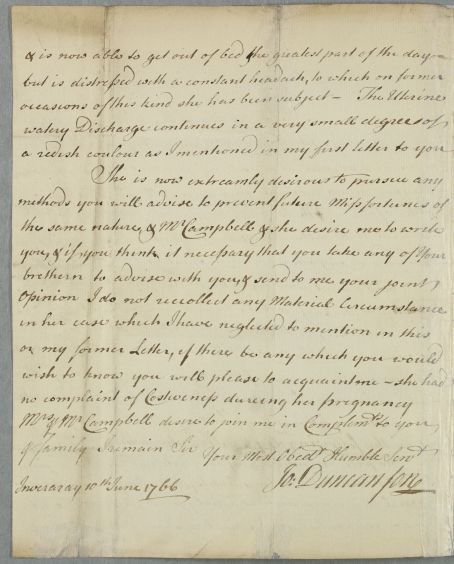 & is now able to get out of bed the greatest part of the day —
but is distressed with a constant headach, to which on former
occasions of this kind she has been subject — The Uterine
watery Discharge continues in a very small degree & of
a redish coulour as I mentioned in my first letter to you
She is now extreamly desirous to pursue any
methods you will advise to prevent future Missfortunes of
the same nature, & Mr Campbell & she desire me to write
you, & if you think it necessary that you take any of your
brethern to advise with you, & send to me your joint
Opinion I do not recollect any Material Circumstance
in her case which I have neglected to mention in this
or my former Letter, if there be any which you would
wish to know you will please to acquaint me — she had
no complaint of Costiveness dureing her pregnancy
Mrs & Mr Campbell desire to join me in Complemts to you
& family I remain Sir
Your Most Obedt Humble Servt
Jo: Duncanson
Inveraray 10th June 1766